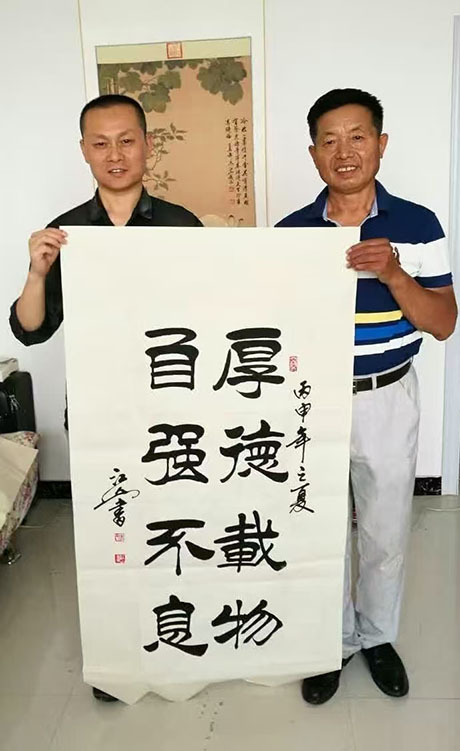 丙申年之夏
厚德載物
自强不息
江山書